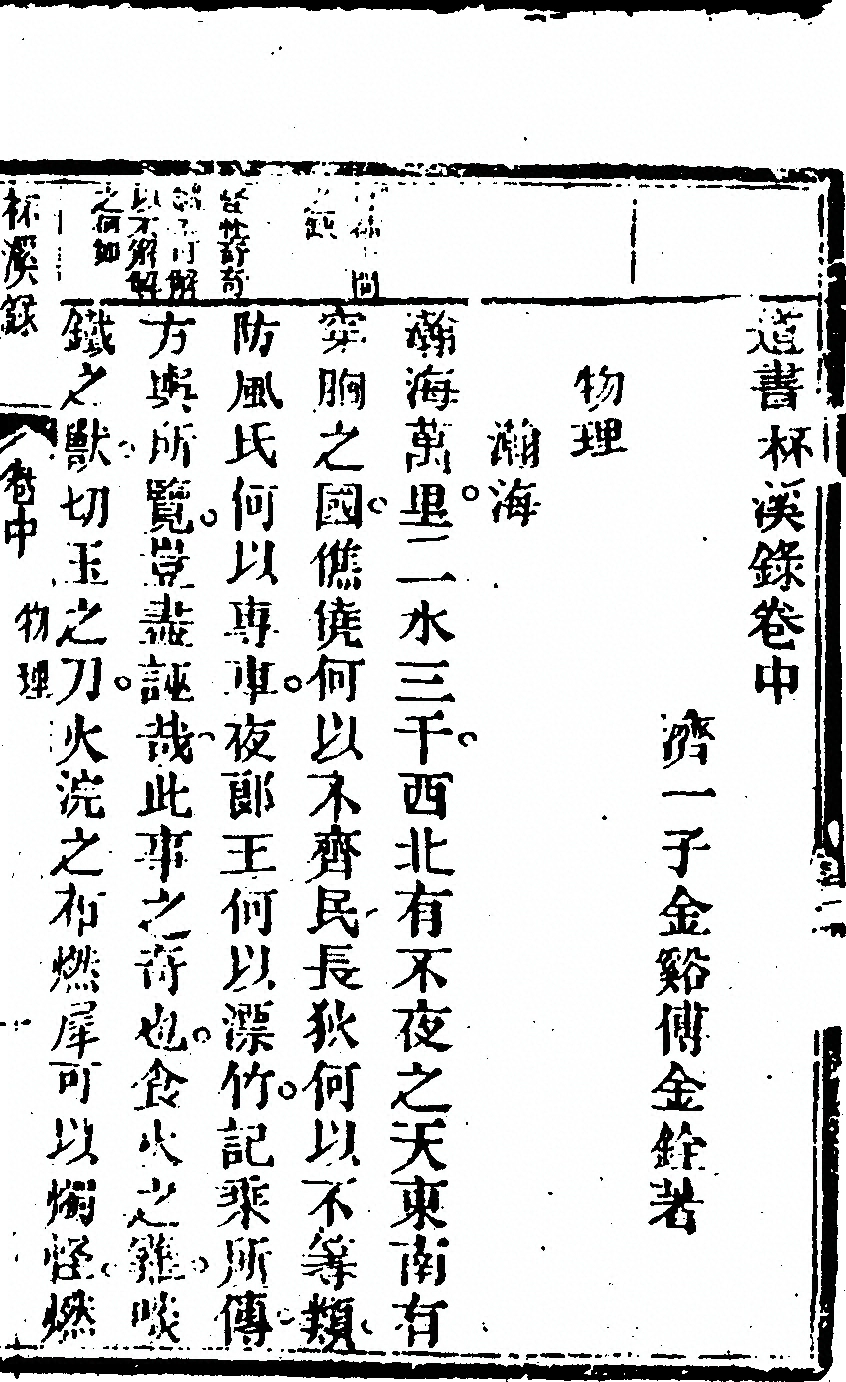 道書杯溪錄卷中
濟一子金谿傅金銓著
物理
瀚海
瀚海萬里二水三千西北有不夜之天東南有
穿胸之國僬僥何以不齊民長狄何以不等類
防風氏何以專車夜郎王何以漂竹記乘所傳
方輿所覽豈盡誣哉此事之奇也食火之雞啖
鐵之獸切玉之刀火浣之布燃犀可以燭怪燃
之何如
杯溪錄
卷中
物理